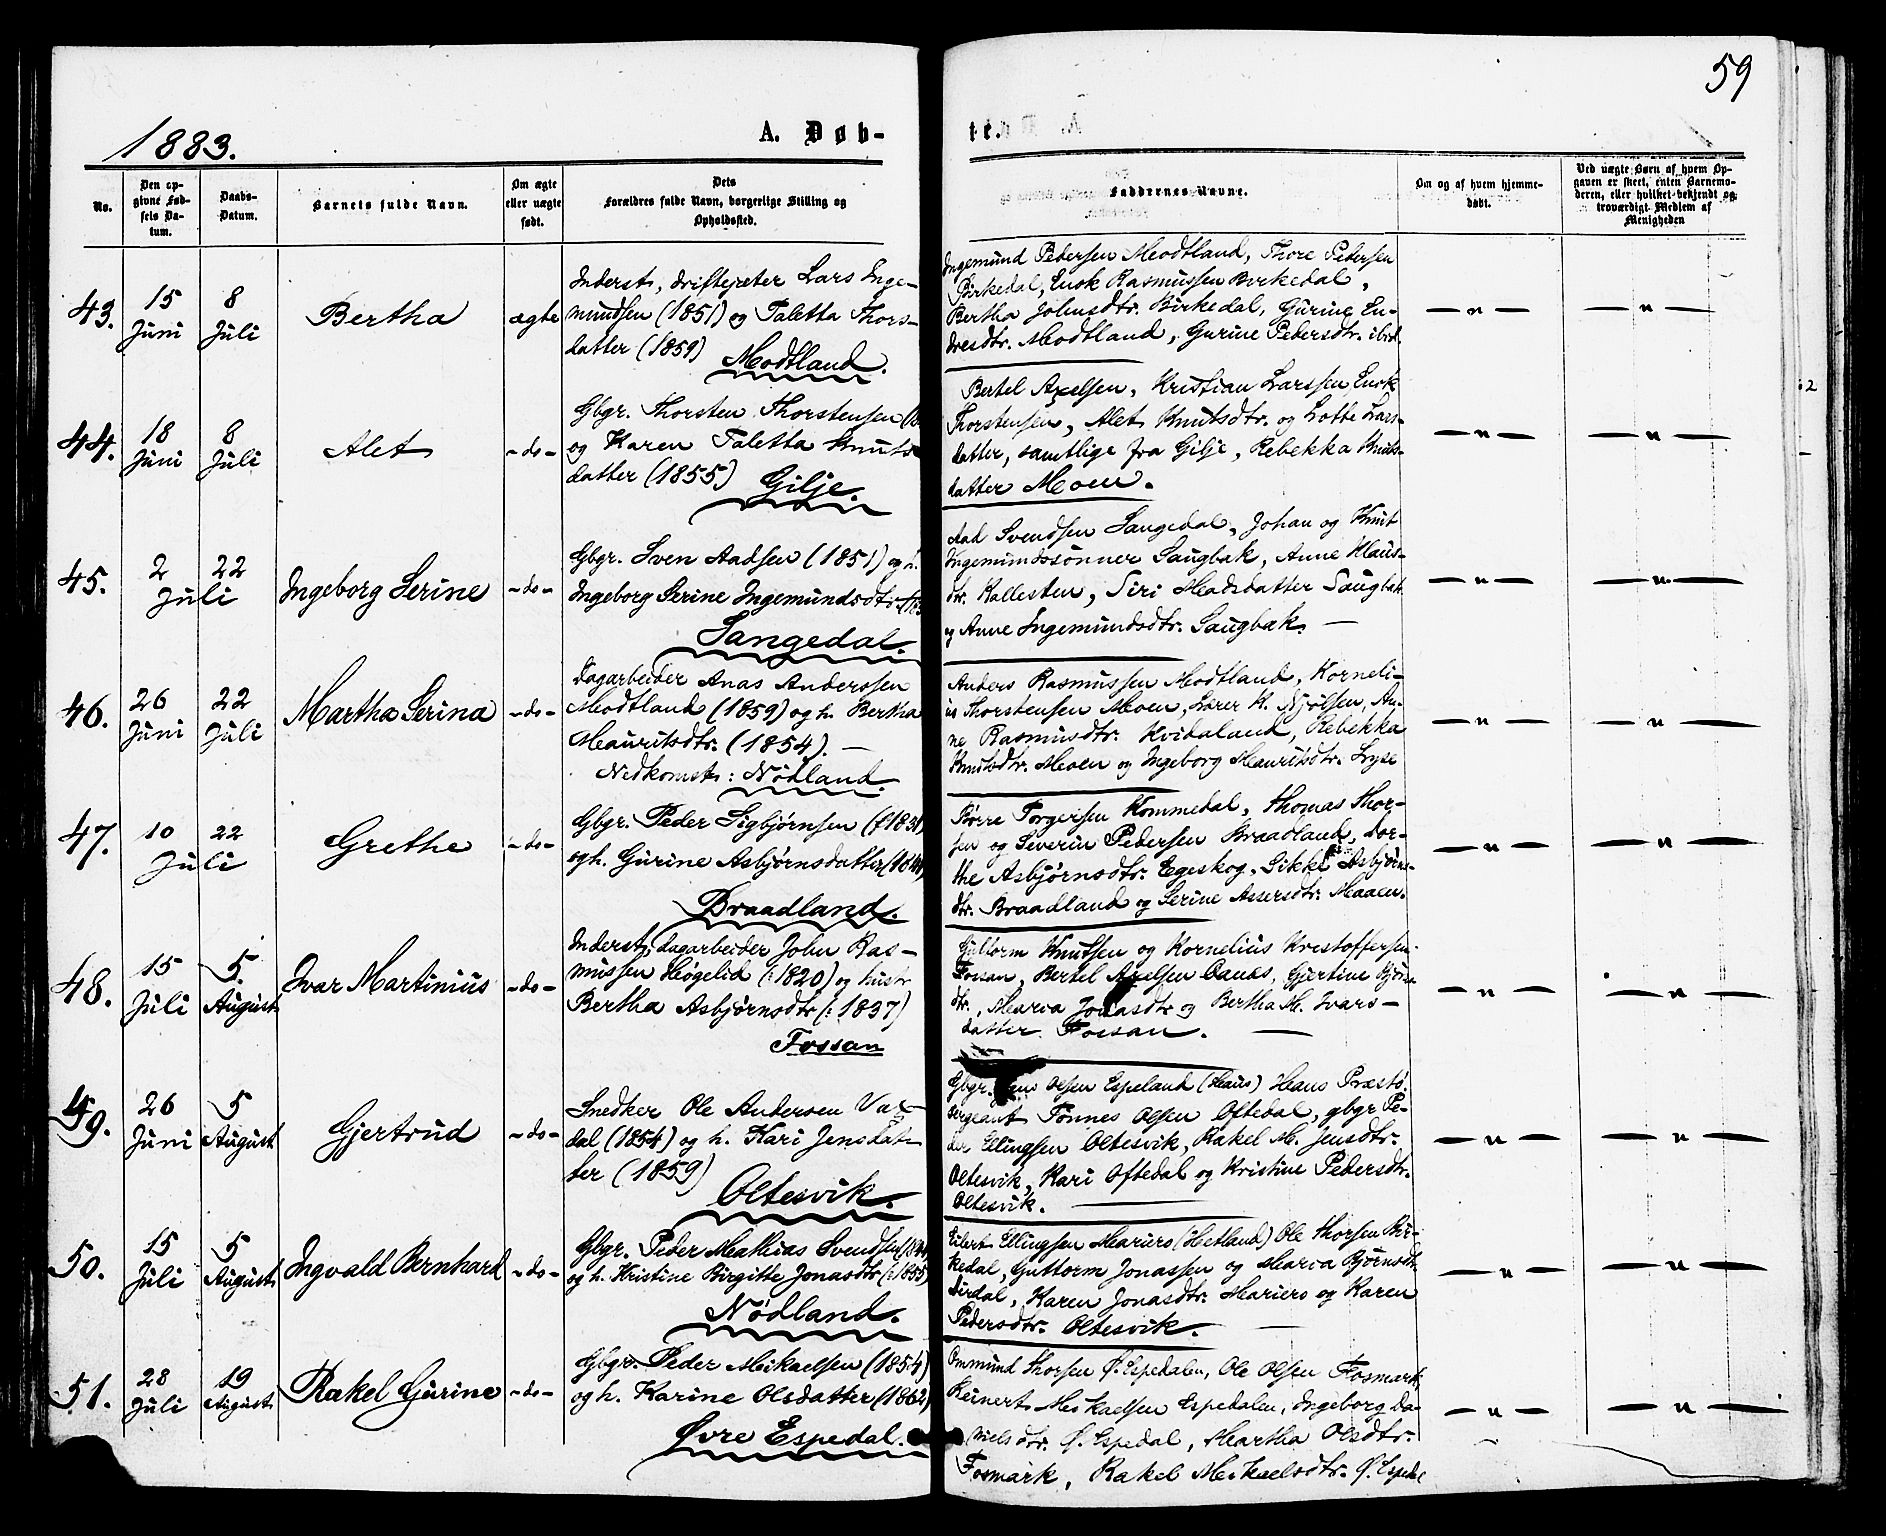 59
1883.
A. Døb-
te.
No.
Den op-
givne Fød-
sels Da-
tum.
Daabs-
Datum.
Barnets fulde Navn.
Om ægte
eller uægte
født.
Dets
Forældres fulde Navn, borgerlige Stilling og
Opholdssted.
Faddernes Navne.
Om og af hvem hjemme-
døbt.
Ved uægte Børn af hvem Op-
gaven er skeet, enten Barnemo-
deren, eller hvilket bekjendt og
troværdigt Medlem af
Menigheden
43.
15
Juni
8
Juli
Bertha
ægte
Inderst, driftejæter Lars Inge-
mundsen (1851) og Taletta Thors-
datter (1859)
Modtland.
Ingemund Pedersen Modtland, Thore Pedersen
Birkedal, Enok Rasmussen Birkedal,
Bertha Johnsdtr. Birkedal, Gurine En-
dresdtr. Modtland, Gurine Pedersdtr. ibid.
44.
18
Juni
8
Juli
Alet
-do-
Gbgr. Thorsten Thorstensen
og Karen Taletta Knuts-
datter (1855)
Gilje.
Bertel Axelsen, Kristian Larssen, Enok
Thorstensen, Alet Knutsdtr. og Lotte Lars-
datter, samtlige fra Gilje, Rebekka Knuts-
datter Moen.
45.
2
22
Juli
Ingeborg Serine
-do-
Gbgr. Sven Aadsen (1851) og h.
Ingeborg Serine Ingemundsdtr.
Sangedal.
Aad Svendsen Sangedal, Johan og Knut
Ingemundssønner Saugbak, Anne Klaus-
dtr. Kallesten, Siri Madsdatter Saugbak
og Anne Ingemundsdtr. Saugbak.
46.
26
Juni
22
Juli
Martha Serina
-do-
Dagarbeider Anas Anderssen
Modtland (1859) og h. Bertha
Mauritsdtr. (1854).
Nedkomst: Nødland.
Anders Rasmussen Modtland, Korneli-
us Thorstensen Moen, Lærer K. Njølsen, An-
ne Rasmusdtr. Kvidaland, Rebekka
Knutsdtr. Moen og Ingeborg Mauritsdtr. Lyse
47.
10
22
Juli
Grethe
-do-
Gbgr. Peder Sigbjørnsen
og h. Gurine Asbjørnsdatter
Braadland.
Børre Torgersen Kommedal, Thomas Thor-
sen og Severin Pedersen Braadland, Dor-
the Asbjørnsdtr. Egeskog, Sikke Asbjørns-
dtr. Braadland og Serine Assersdtr. Maaen.
48.
15
Juli
5
August
Ivar Martinius
-do-
Inderst, dagarbeider John Ras-
mussen Høgelid (:1820) og hustr
Bertha Asbjørnsdtr (:1837)
Fossan
Guttorm Knutsen og Kornelius Kristoffersen
Fossan, Bertel Axelsen Canes, Gjertine Bjørns-
dtr., Marva Jonasdtr og Bertha M. Ivars-
datter Fossan.
49.
26
Juni
5
August
Gjertrud
-do-
Snedker Ole Andersen Var-
dal (1854) og h. Kari Jensdat-
ter (1859)
Oltesvik.
Gbgr. Jens Olsen Espeland (Haus) Hans Præstø.
Sergeant Tønnes Olsen Oftedal, gbgr Pe-
der Ellingsen Oltesvik, Rakel M. Jensdtr.
Oltesvik, Kari Oftedal og Kristine Pedersdtr.
Oltesvik.
50.
15
Juli
5
August
Ingvald Bernhard
-do-
Gbgr. Peder Mathias Svendsen
og h. Kristine Birgitte Jonasdtr (:1855)
Nødland.
Eilert Ellingsen Mariero (Hetland) Ole Thorsen Bir-
kedal, Guttorm Jonassen og Marva Bjørnsdtr
Dirdal, Karen Jonasdtr. Mariero og Karen
Pedersdtr. Oltesvik.
51.
28
Juli
19
August
Rakel Gurine
-do-
Gbgr. Peder Mikaelsen (1854)
og h. Karine Olsdatter (1862)
Øvre Espedal.
Ommund Thorsen Ø. Espedalen, Ole Olsen Fosmark,
Reinert Mikaelsen Espedalen, Ingeborg Da-
nielsdtr. Ø. Espedal, Martha Olsdtr.
Fosmark, Rakel Mikaelsdtr. Ø. Espedal